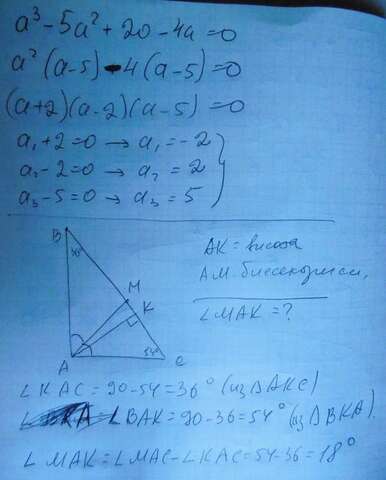 a³ - 5a² + 20 - 4a = 0
a² (a-5) - 4 (a-5) = 0
(a+2)(a-2)(a-5) = 0
a₁ + 2 = 0 → a₁ = -2
a₂ - 2 = 0 → a₂ = 2
a₃ - 5 = 0 → a₃ = 5
B
M
K
A
C
54°
AK = высота
AM - биссектриса,
∠MAK = ?
∠KAC = 90 - 54 = 36° (из ΔAKC)
∠BAK = 90 - 36 = 54° (из ΔBKA).
∠MAK = ∠MAC - ∠KAC = 54 - 36 = 18°